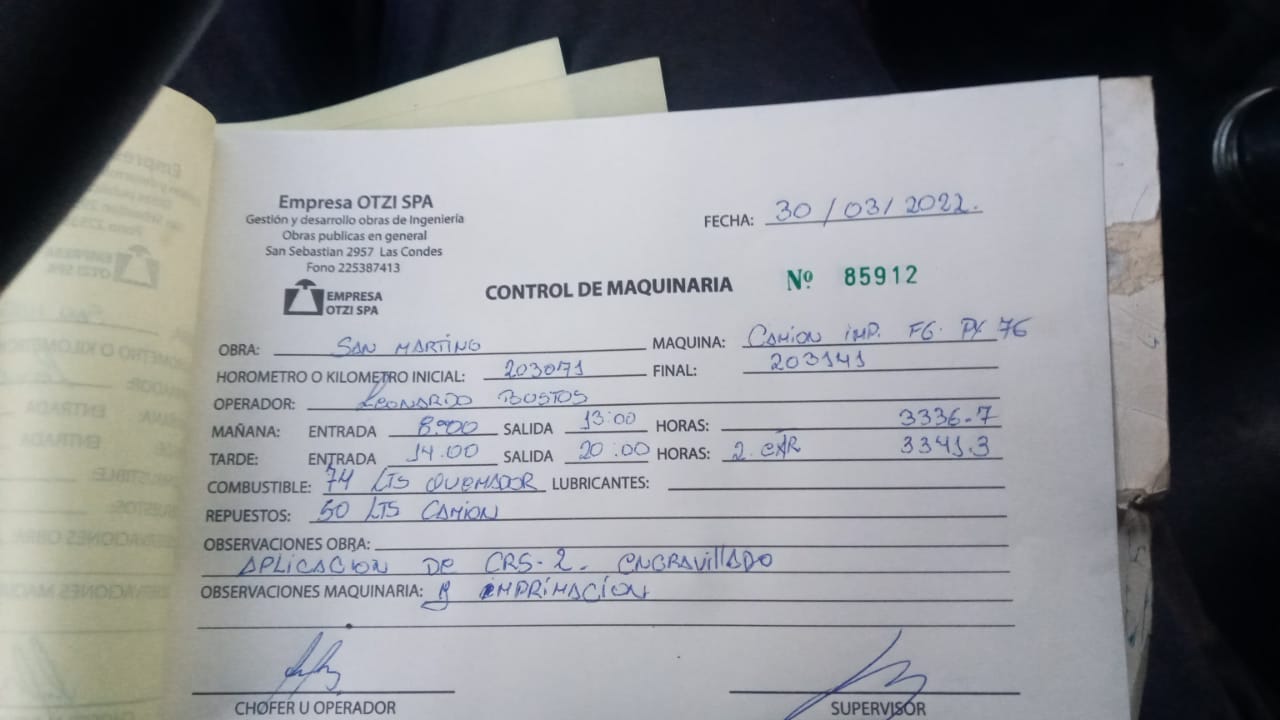 Empresa OTZI SPA
Gestión y desarrollo obras de Ingeniería
Obras publicas en general
San Sebastian 2957 Las Condes
Fono 225387413
EMPRESA
OTZI SPA
FECHA: 30 / 03 / 2022.
CONTROL DE MAQUINARIA Nº 85912
OBRA: SAN MARTINO MAQUINA: CAMION IMP. FG. PX 76
HOROMETRO O KILOMETRO INICIAL: 203071 FINAL: 203141
OPERADOR: LEONARDO BUSTOS
MAÑANA: ENTRADA 8:00 SALIDA 13:00 HORAS: 3336.7
TARDE: ENTRADA 14:00 SALIDA 20:00 HORAS: 2. CAR 3341.3
COMBUSTIBLE: 74 LTS QUEMADOR LUBRICANTES:
REPUESTOS: 50 LTS CAMION
OBSERVACIONES OBRA:
APLICACION DE CRS-2. ENGRAVILLADO
OBSERVACIONES MAQUINARIA: y IMPRIMACIÓN
CHOFER U OPERADOR SUPERVISOR